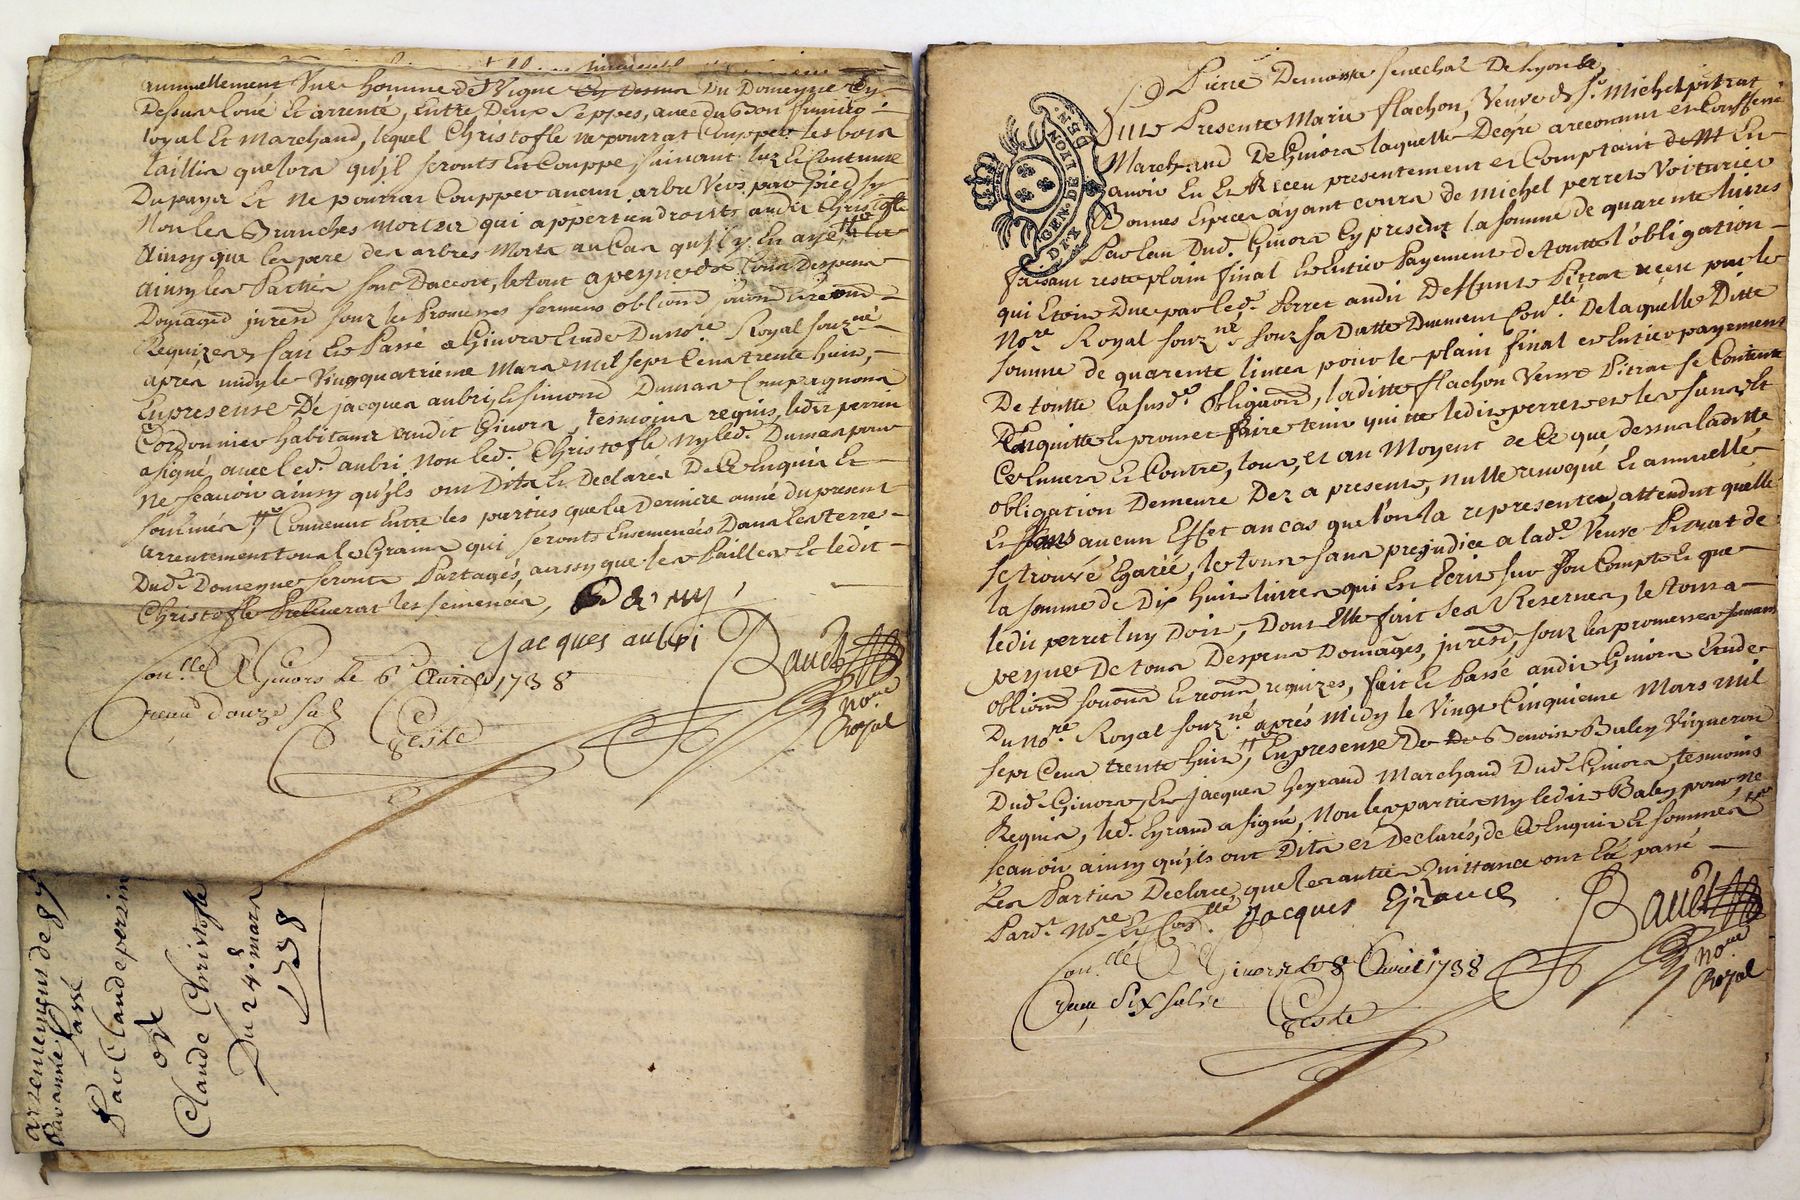 annuellement Une homme de Vigne Du Domeyne Cy
Dessus loué Et arrenté, Entre Deux Seppes, avec du Bon fumier
loyal Et Marchand, lequel Christofle ne pourrat Coupper les bois
taillis que lors qu'il seronts En Couppe, suivant luz Et Coutume
Du payx Et ne pourrat Coupper aucun arbre Vers par pied sy
Non les Branches mortes qui appertiendronts audit Christofle
Ainsy que les arbres Morts au Cas qu'il y En aye
ainsy les Parties sont Daccort, le tout a peyne de tous Despens
Domages jurend sous les Promesses sermens obliond
Requizes fait Et Passé a Givors Etude Du no.re Royal souz.né
apres midy le Vingquatrieme Mars mil sept Cens trente huit,
En presense De jacques aubri, Et simond Dumas Compagnons
Cordonnier habitans audit Givors, tesmoins requis, ledit perrin
a signé avec led. aubri, Non led. Christofle ny led. Dumas pour
ne sçavoir ainsy qu'ils ont Dits Et Declarés De Ce Enquis Et
sommés, Convenut Entre les parties que la Derniere année du present
arrentement tous les Grains qui seronts Ensemencés Dans les terres
Dud. Domeyne seronts Partagés, aussy que les Pailles Et ledit
Christofle Preleverat les semences,
jacques aubri
Bauet
no.re
Royal
Con.llé A Givors le 6.e Avril 1738
receu douze sols
arrentement de 8
Par année
Passé
Par Claude perrin
a
Claude Christofle
Du 24.e mars
1738
GEN. DE LYON
Pierre senechal De Lyon
Marie flachon, Veuve de S.r Michel pitrat
Marchand De Givors laquelle De gré a reconnut et Confessé
avoir Eu Et Receu presentement et Comptant
Bonnes Especes ayant cours de Michel perret Voiturier
Dud. Givors Cy present la somme de quarente livres
faisant reste plain final Et Entier Payement de toutte l'obligation
qui Etoit Due par led. Perret audit Deffunt Pitrat receu par le
No.re Royal souz.né souz sa Datte Duement Con.llé De laquelle Ditte
somme de quarente livres pour le plain final et Entier payement
De toutte la susd. obligaond, laditte flachon Veuve Pitrat se Contente
En quitte Et promet faire tenir quitte ledit perret et les siens Et
Envers Et Contre, tous, et au Moyent de Ce que dessus laditte
obligation Demeure Dez a present, nulle revoqué Et annullée
Et sans aucun Effet au cas que l'on la representes, attendut quelle
se trouve Egarée, le tout sans prejudice a lad. Veuve Pitrat de
la somme de Dix huit livres qui Est Ecrit sur son Compte Et que
ledit perret luy Doit, Dont Elle fait ses Reserves, le tout a
peyne De tous Despens Domages, jurend, souz les promesses sermens
obliond requizes, fait Et Passé audit Givors Etude
Du No.re Royal souz.né apres Midy le Vingt Cinquieme Mars mil
sept Cens trente huit, En presense De Benoist Baley Vigneron
Dud. Givors, Et jacques heyraud Marchand Dud. Givors, tesmoins
Requis, led. Eyraud a signé, Non les parties ny ledit Baley pour ne
sçavoir ainsy qu'ils ont Dits et Declarés, de Ce Enquis Et sommés
Les Parties Declare que les autres Quittance ont Eté passé
Pard.t No.re Et Con.llé
Jacques Eyraud
Bauet
no.re
Royal
Con.llé A Givors le 8 Avril 1738
receu Six sols